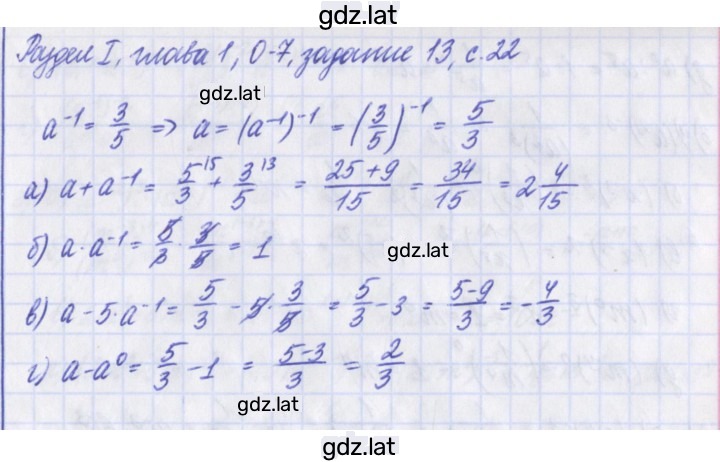 gdz.lat
Раздел I, глава 1, О-7, задание 13, с. 22
gdz.lat
a⁻¹ = 3/5 => a = (a⁻¹)⁻¹ = (3/5)⁻¹ = 5/3
а) a + a⁻¹ = 5/3 ⁾⁵ + 3/5 ⁾³ = (25+9)/15 = 34/15 = 2 4/15
б) a · a⁻¹ = 5/3 · 3/5 = 1
gdz.lat
в) a - 5 · a⁻¹ = 5/3 - 5 · 3/5 = 5/3 - 3 = (5-9)/3 = -4/3
г) a - a⁰ = 5/3 - 1 = (5-3)/3 = 2/3
gdz.lat
gdz.lat